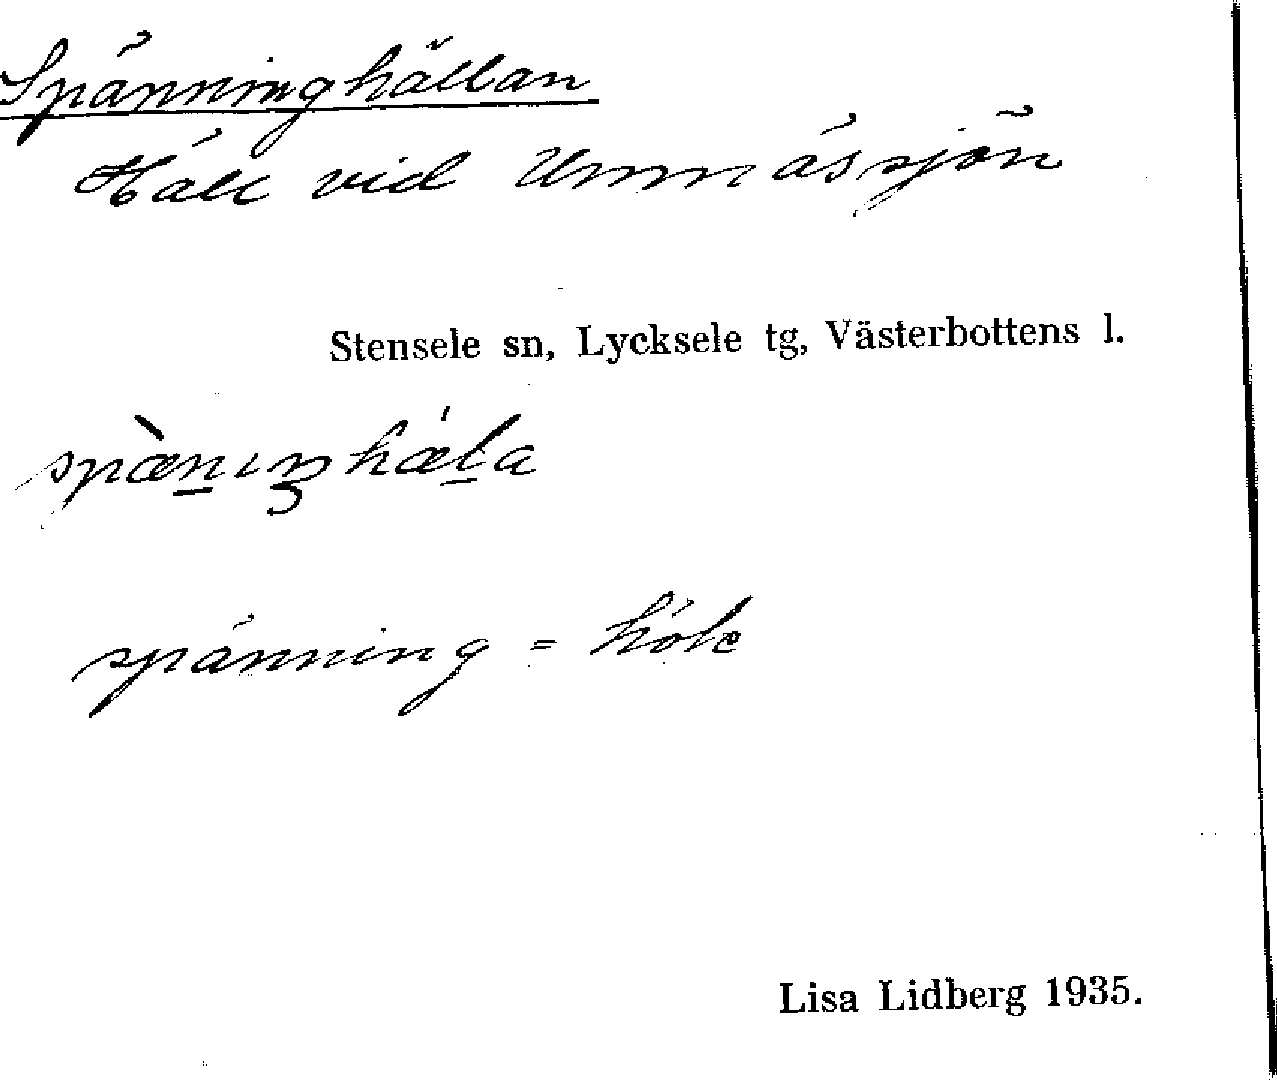 Spänninghällan
Häll vid Umnässjön
Stensele sn, Lycksele tg, Västerbottens l.
spæ̀n̲ıŋhæ´l̲a
spänning = hök
Lisa Lidberg 1935.